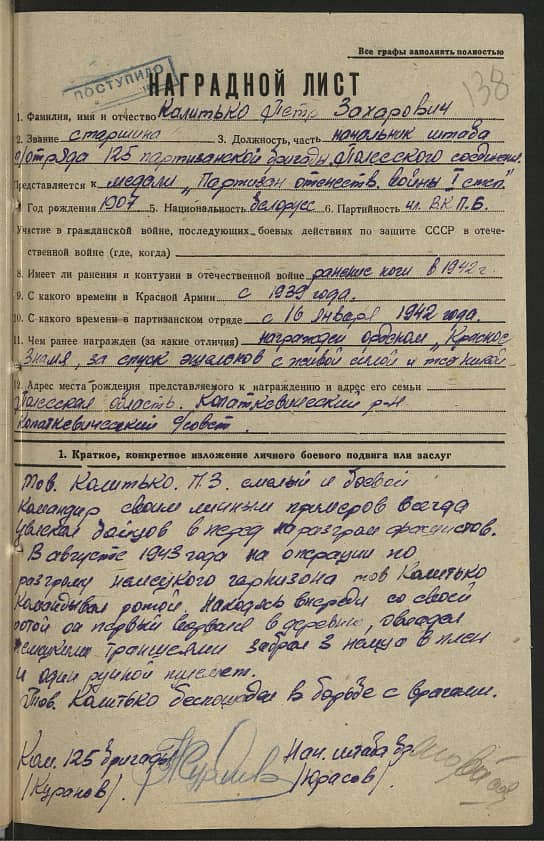 Все графы заполнять полностью
138
ПОСТУПИЛО
НАГРАДНОЙ ЛИСТ
1. Фамилия, имя и отчество Калитько Петр Захарович
2. Звание старшина 3. Должность, часть начальник штаба
отряда 125 партизанской бригады Полесского соединен.
Представляется к медали „Партизан отечеств. войны I степ"
4. Год рождения 1907 5. Национальность белорус 6. Партийность чл. ВКП.Б.
Участие в гражданской войне, последующих боевых действиях по защите СССР в отече-
ственной войне (где, когда)
8. Имеет ли ранения и контузии в отечественной войне ранение ноги в 1942 г.
9. С какого времени в Красной Армии с 1939 года.
10. С какого времени в партизанском отряде с 16 января 1942 года.
11. Чем ранее награжден (за какие отличия) награжден орденом „Красное
Знамя, за спуск эшелонов с живой силой и техникой
12. Адрес места рождения представляемого к награждению и адрес его семьи
Полесская область. Копаткевический р-н
Копаткевический с/совет.
1. Краткое, конкретное изложение личного боевого подвига или заслуг
Тов. Калитько. П.З. смелый и боевой
Командир своим личным примером всегда
увлекал бойцов в перед на разгром фашистов.
В августе 1943 года на операции по
разгрому немецкого гарнизона тов Калитько
Командывал ротой. Находясь впереди со своей
ротой он первый ворвался в деревню, овладел
немецкими траншеями забрал 3 немца в плен
и один ручной пулемет.
Тов. Калитько беспощаден в борьбе с врагами.
Ком. 125 бригады
Нач. штаба бр
/Куранов/
/Юрасов/